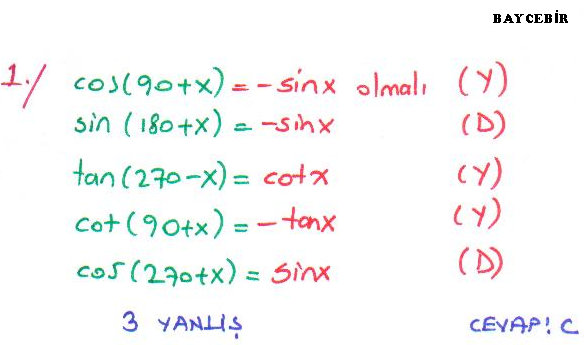 BAYCEBİR
1./ cos(90+x) = -sinx olmalı (Y)
sin (180+x) = -sinx (D)
tan(270-x) = cotx (Y)
cot(90+x) = -tanx (Y)
cos(270+x) = sinx (D)
3 YANLIŞ CEVAP: C